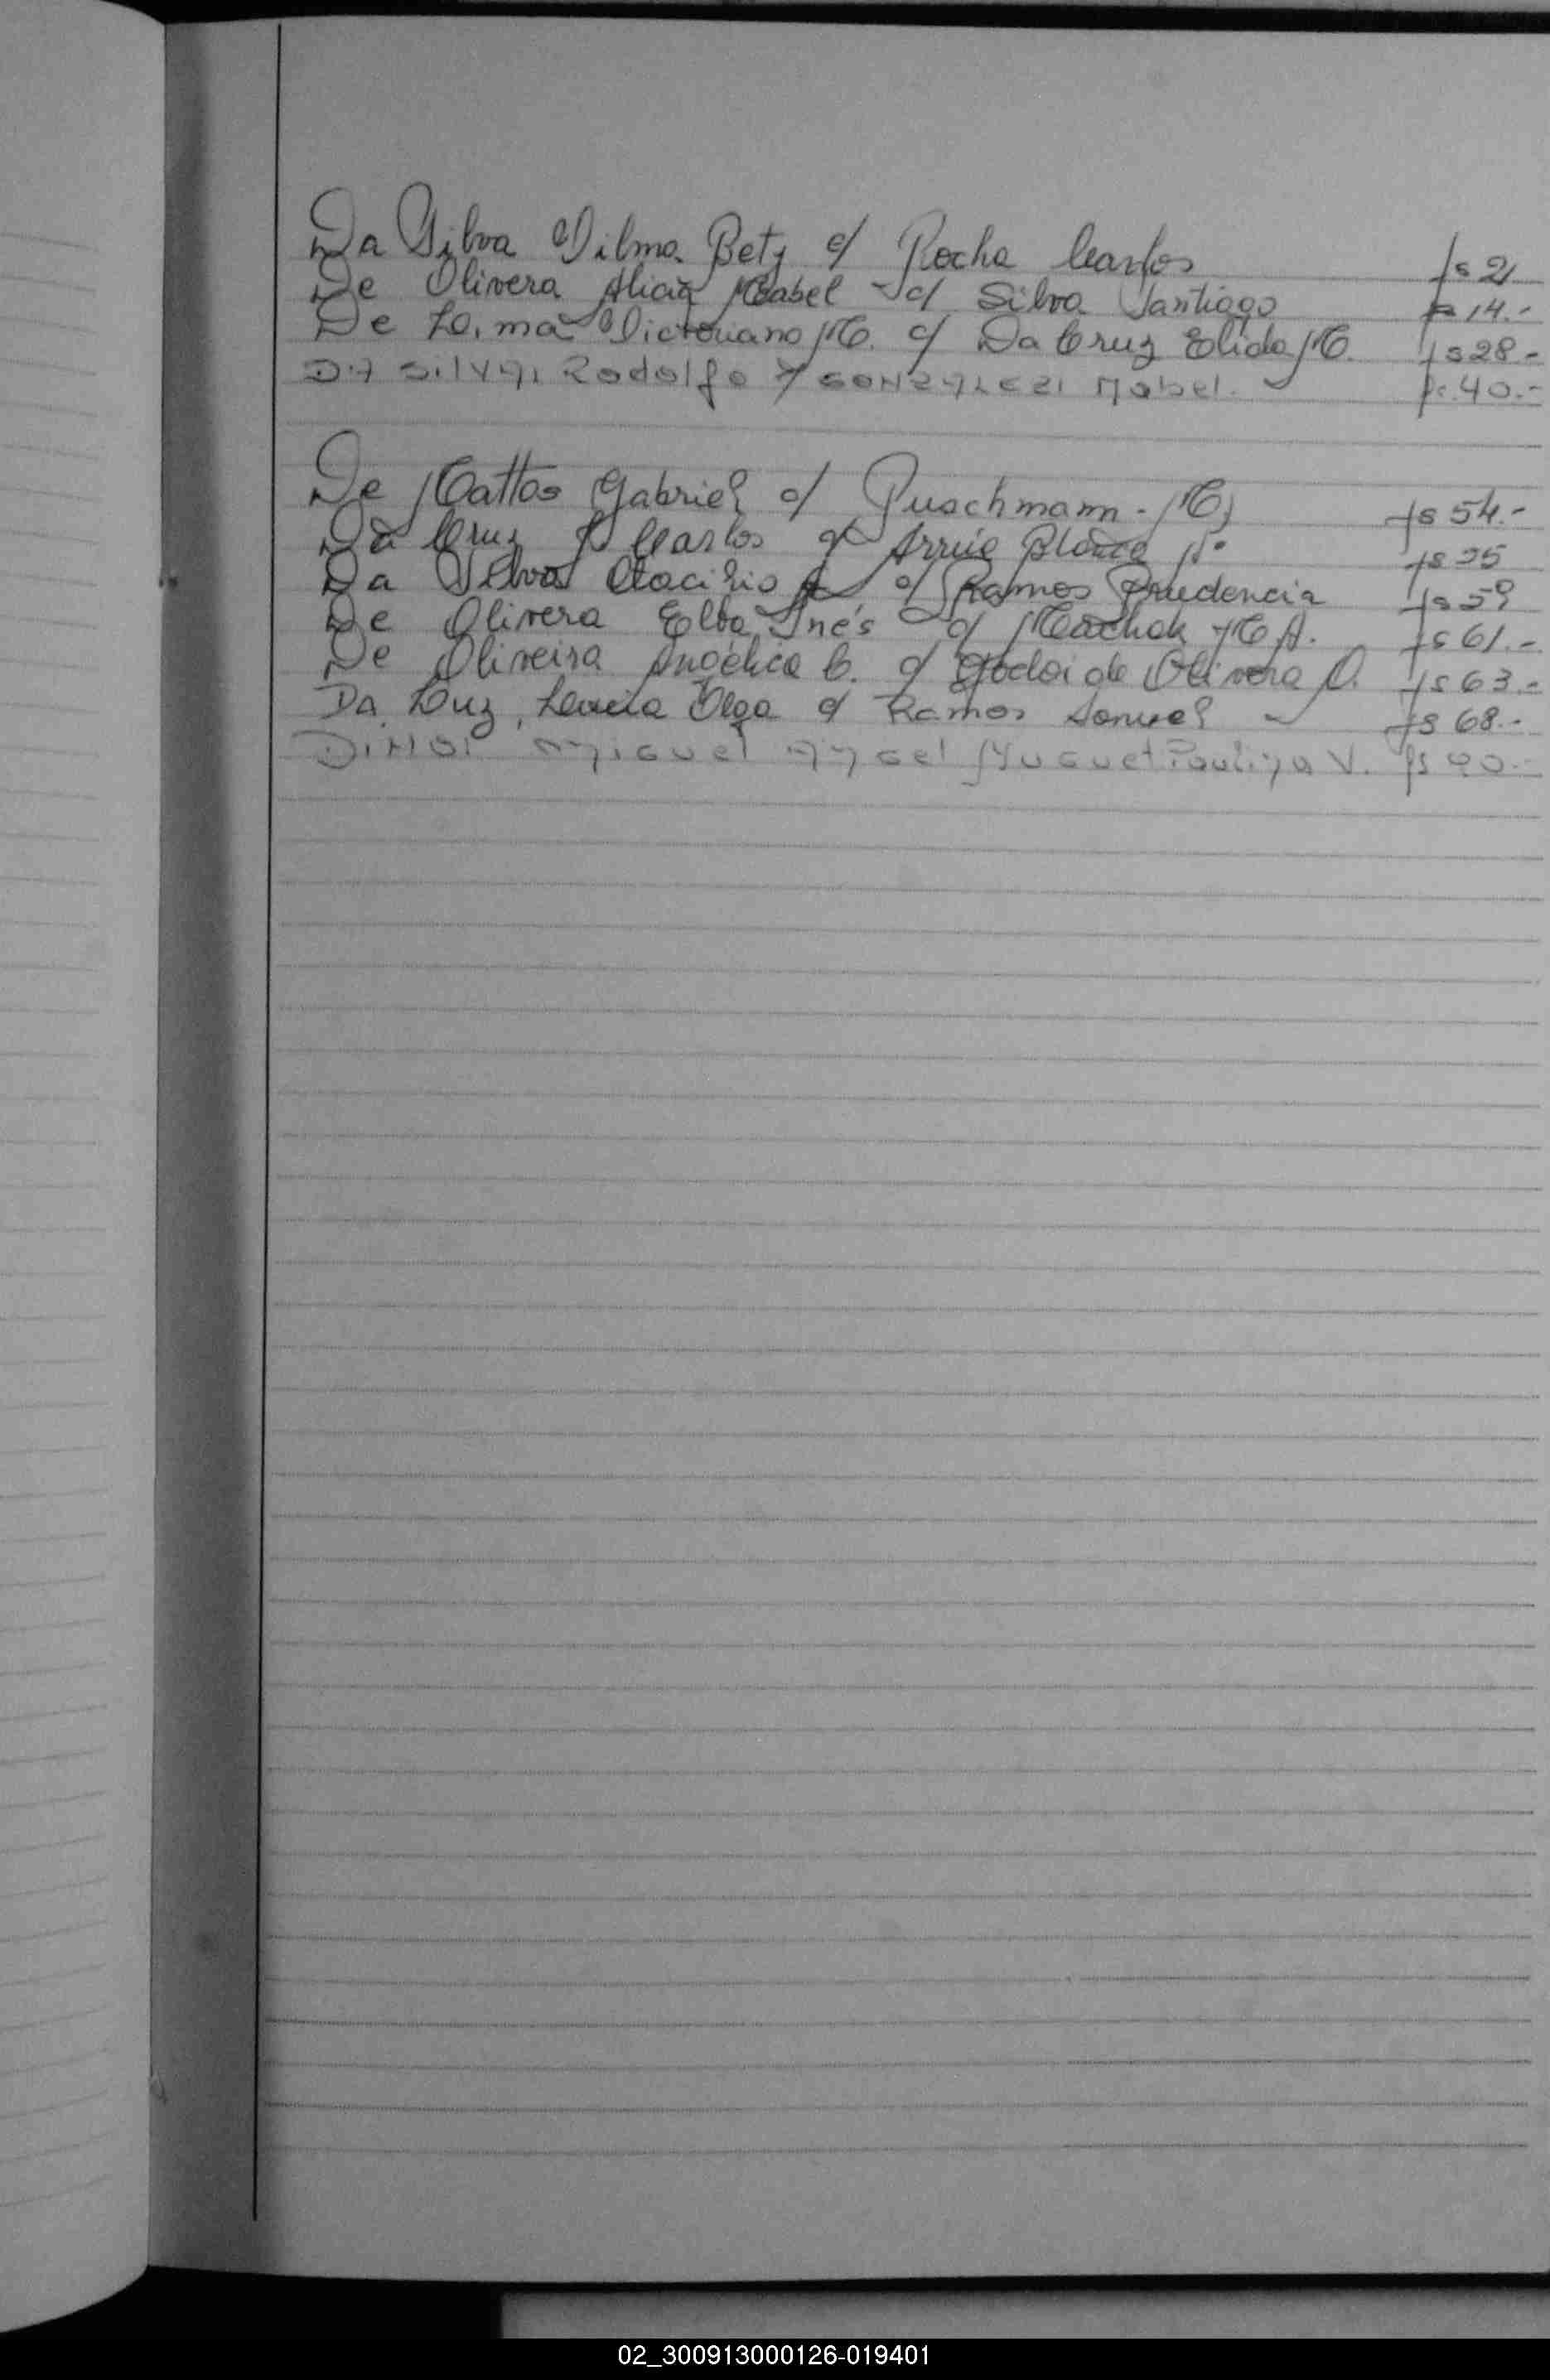 Da Silva Vilma Bety c/ Rocha Carlos fs 21
De Olivera Alicia Mabel c/ Silva Santiago fs 14.-
De Lima Victoriano M. c/ Da Cruz Elida M. fs 28.-
DA SilVA, Rodolfo Y GONZALEZ, Mabel. fs. 40.-
De Mattos Gabriel c/ Puschmann - M. fs 54.-
Da Cruz Carlos c/ Arrua fs 55
Da Silva Otacilio c/ Ramos Prudencia fs 59
De Olivera Elba Inés c/ M A. fs 61.-
De Oliveira Angélica C. c/ Godoi de Olivera O. fs 63.-
Da Luz, Olga c/ Ramos fs 68.-
Miguel Angel Paulina V. fs 90.-
02_300913000126-019401